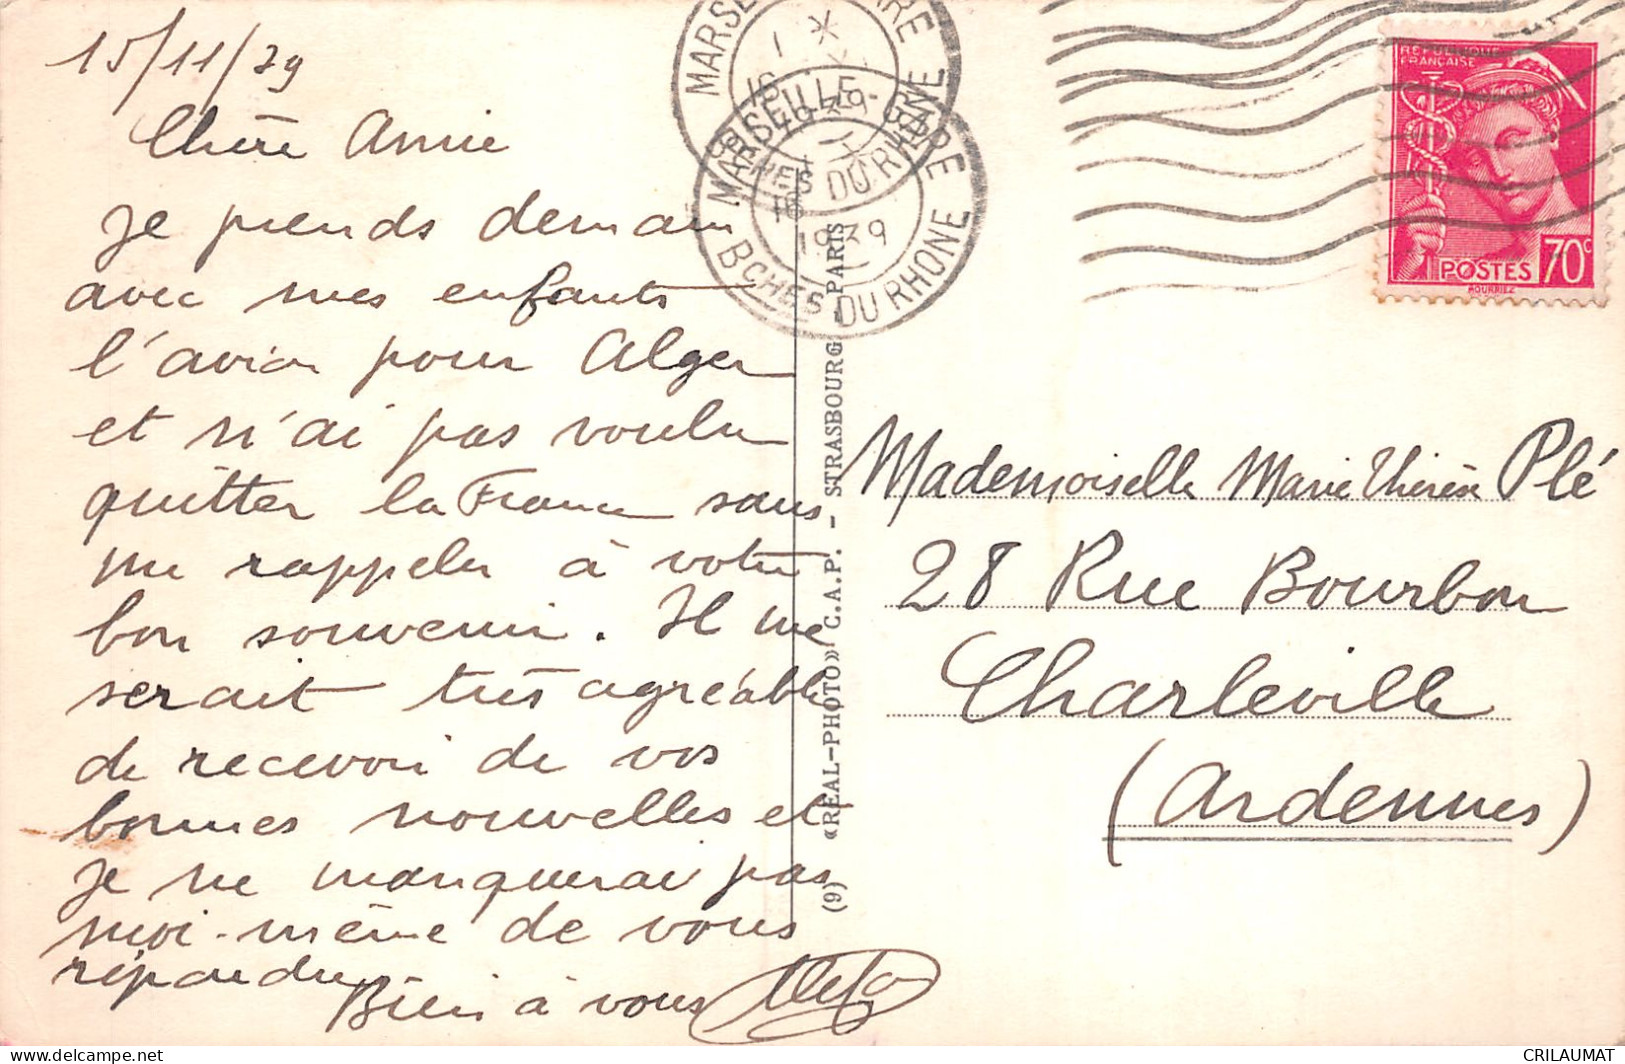 15/11/39
Chère Amie
je prends demain
avec mes enfants
l'avion pour Alger
et n'ai pas voulu
quitter la France sans
me rappeler à votre
bon souvenir. Il me
serait très agréable
de recevoir de vos
bonnes nouvelles et
je ne manquerai pas
moi-même de vous
répondre
Bien à vous
MARSEILLE-GARE
16
1939
BCHES DU RHONE
MARSEILLE-GARE
16
1939
BCHES DU RHONE
RÉPUBLIQUE
FRANÇAISE
POSTES 70c
HOURRIEZ
(9) «REAL-PHOTO» C.A.P. - STRASBOURG - PARIS
Mademoiselle Marie Thérèse Plé
28 Rue Bourbon
Charleville
(Ardennes)
CRILAUMAT